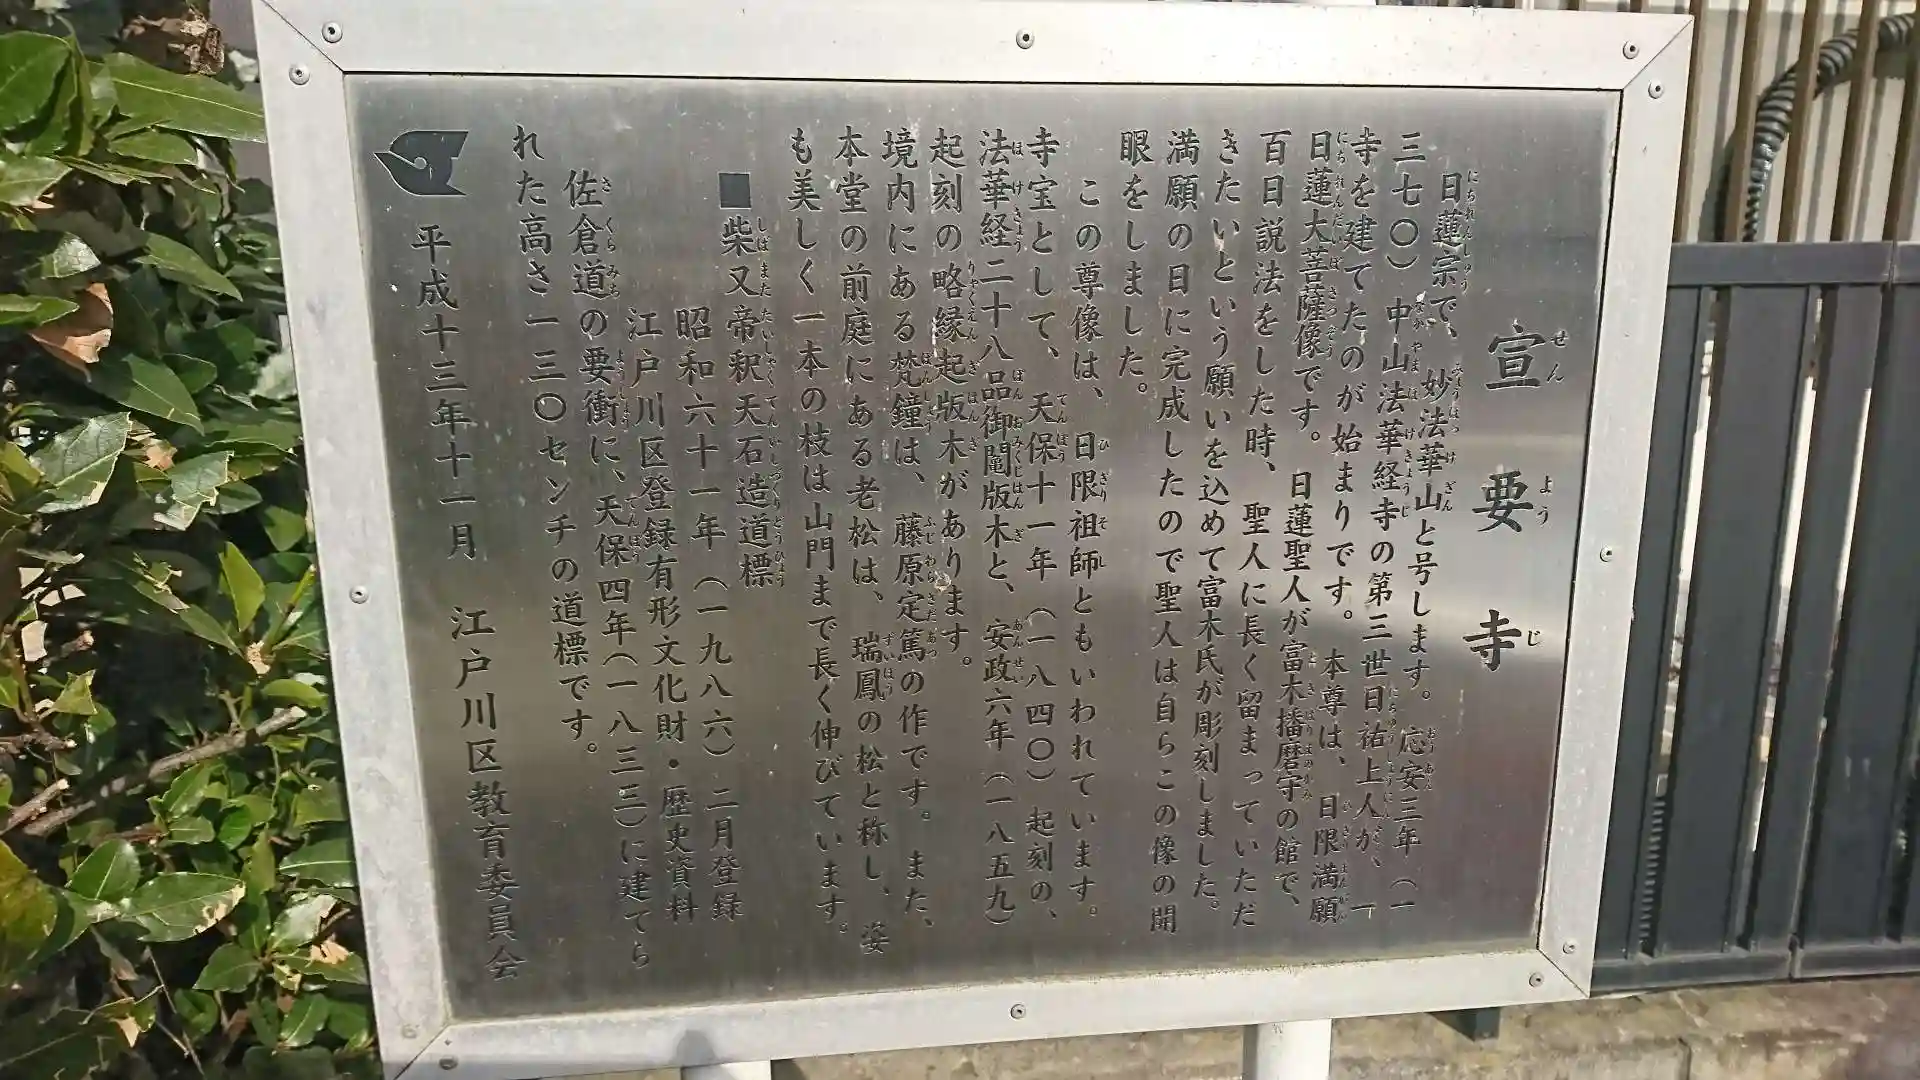 宣要寺
日蓮宗で、妙法華山と号します。応安三年（一
三七〇）中山法華経寺の第三世日祐上人が、一
寺を建てたのが始まりです。本尊は、日限満願
日蓮大菩薩像です。日蓮聖人が富木播磨守の館で、
百日説法をした時、聖人に長く留まっていただ
きたいという願いを込めて富木氏が彫刻しました。
満願の日に完成したので聖人は自らこの像の開
眼をしました。
この尊像は、日限祖師ともいわれています。
寺宝として、天保十一年（一八四〇）起刻の、
法華経二十八品御鬮版木と、安政六年（一八五九）
起刻の略縁起版木があります。
境内にある梵鐘は、藤原定篤の作です。また、
本堂の前庭にある老松は、瑞鳳の松と称し、姿
も美しく一本の枝は山門まで長く伸びています。
■柴又帝釈天石造道標
昭和六十一年（一九八六）二月登録
江戸川区登録有形文化財・歴史資料
佐倉道の要衝に、天保四年（一八三三）に建てら
れた高さ一三〇センチの道標です。
平成十三年十一月 江戸川区教育委員会